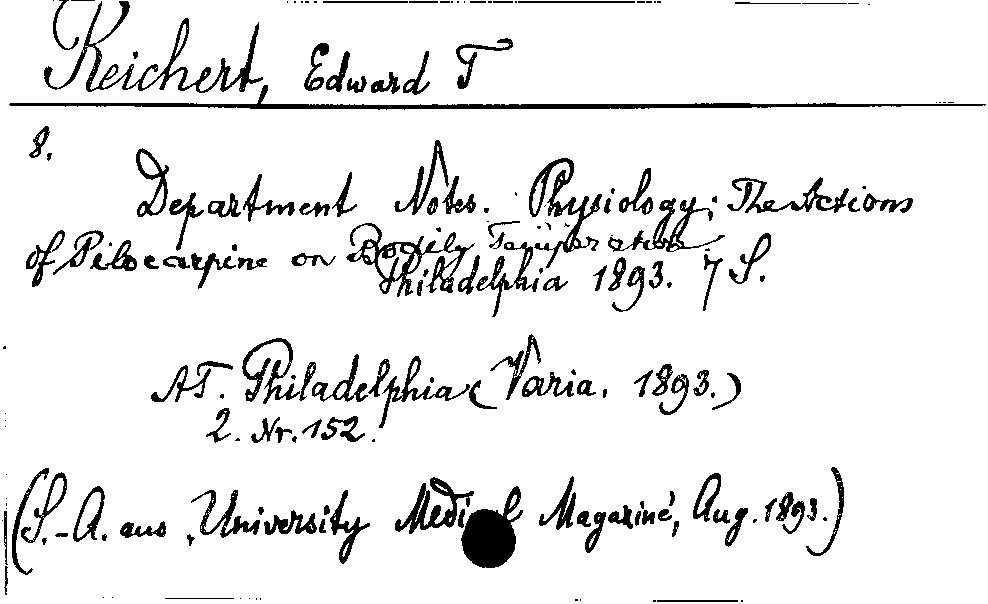 Reichert, Edward T
8.
Department Notes. Physiology; The Actions
of Pilocarpine on Bodily Temperature
Philadelphia 1893. 7 S.
AT. Philadelphia (Varia. 1893.)
2. Nr. 152.
(S.-A. aus ‚University Medical Magazine', Aug. 1893.)